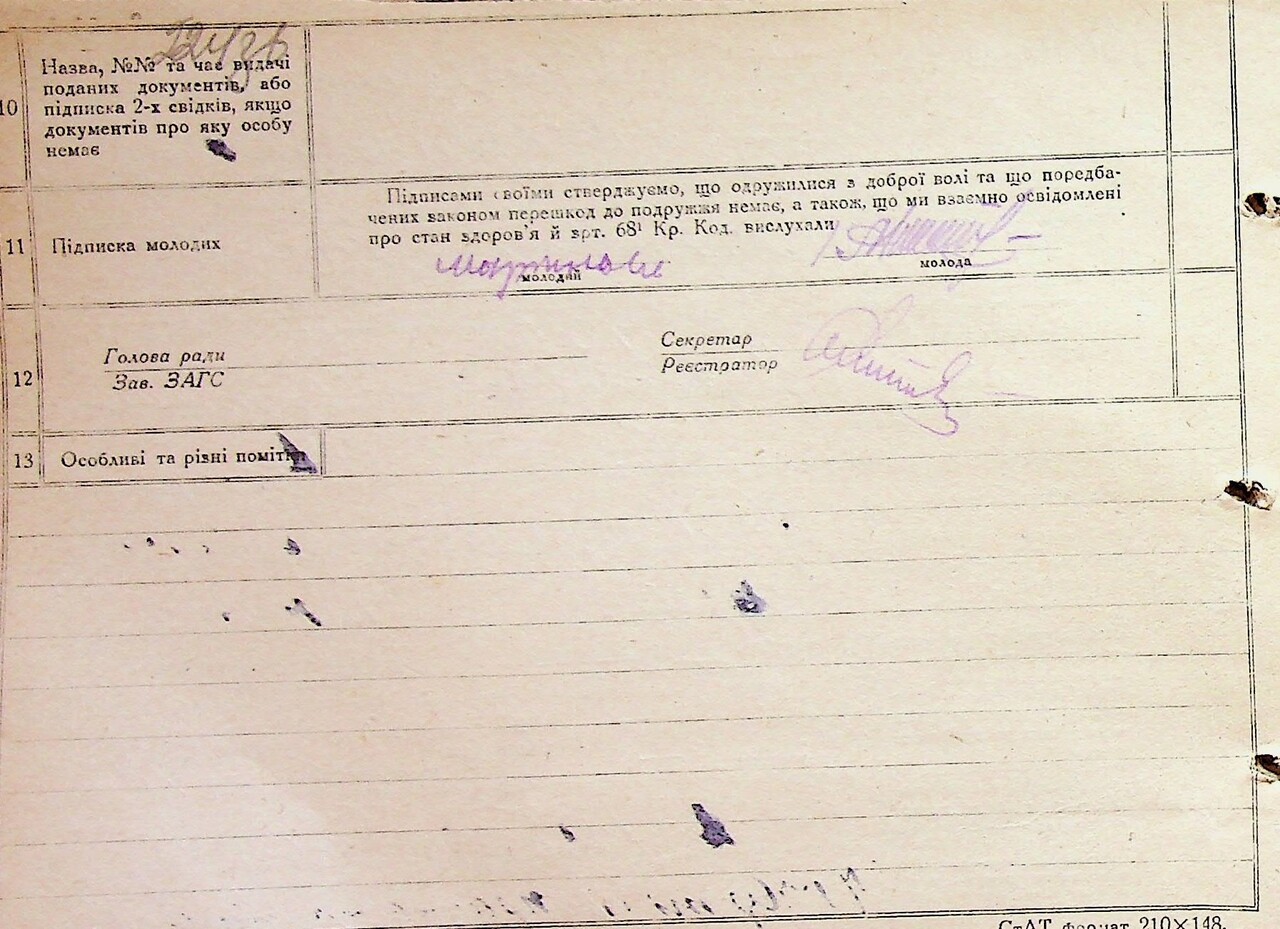 10
Назва, №№ та час видачі
поданих документів, або
підписка 2-х свідків, якщо
документів про яку особу
немає
11
Підписка молодих
Підписами своїми стверджуємо, що одружилися з доброї волі та що поредба-
чених законом перешкод до подружжя немає, а також, що ми взаємно освідомлені
про стан здоров'я й врт. 68¹ Кр. Код. вислухали
молодий
молода
12
Голова ради
Зав. ЗАГС
Секретар
Реєстратор
13
Особливі та різні помітки
СтАТ формат 210×148.